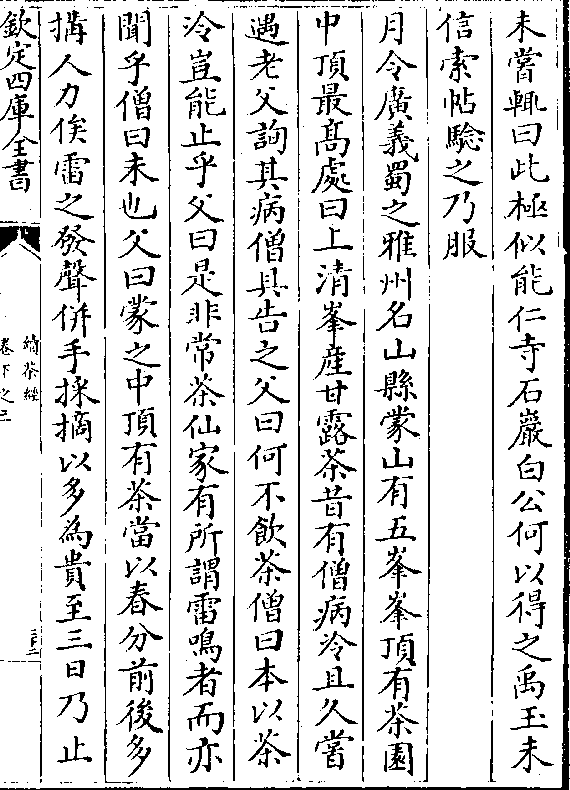 未嘗輒曰此極似能仁寺石巖白公何以得之禹玉未
信索帖騐之乃服
月令廣義蜀之雅州名山縣蒙山有五峯峯頂有茶園
中頂最髙處曰上清峯産甘露茶昔有僧病冷且久嘗
遇老父詢其病僧具告之父曰何不飲茶僧曰本以茶
冷豈能止乎父曰是非常茶仙家有所謂雷鳴者而亦
聞乎僧曰未也父曰蒙之中頂有茶當以春分前後多
搆人力俟雷之發聲併手採摘以多為貴至三日乃止
欽定四庫全書
續茶經
卷下之三